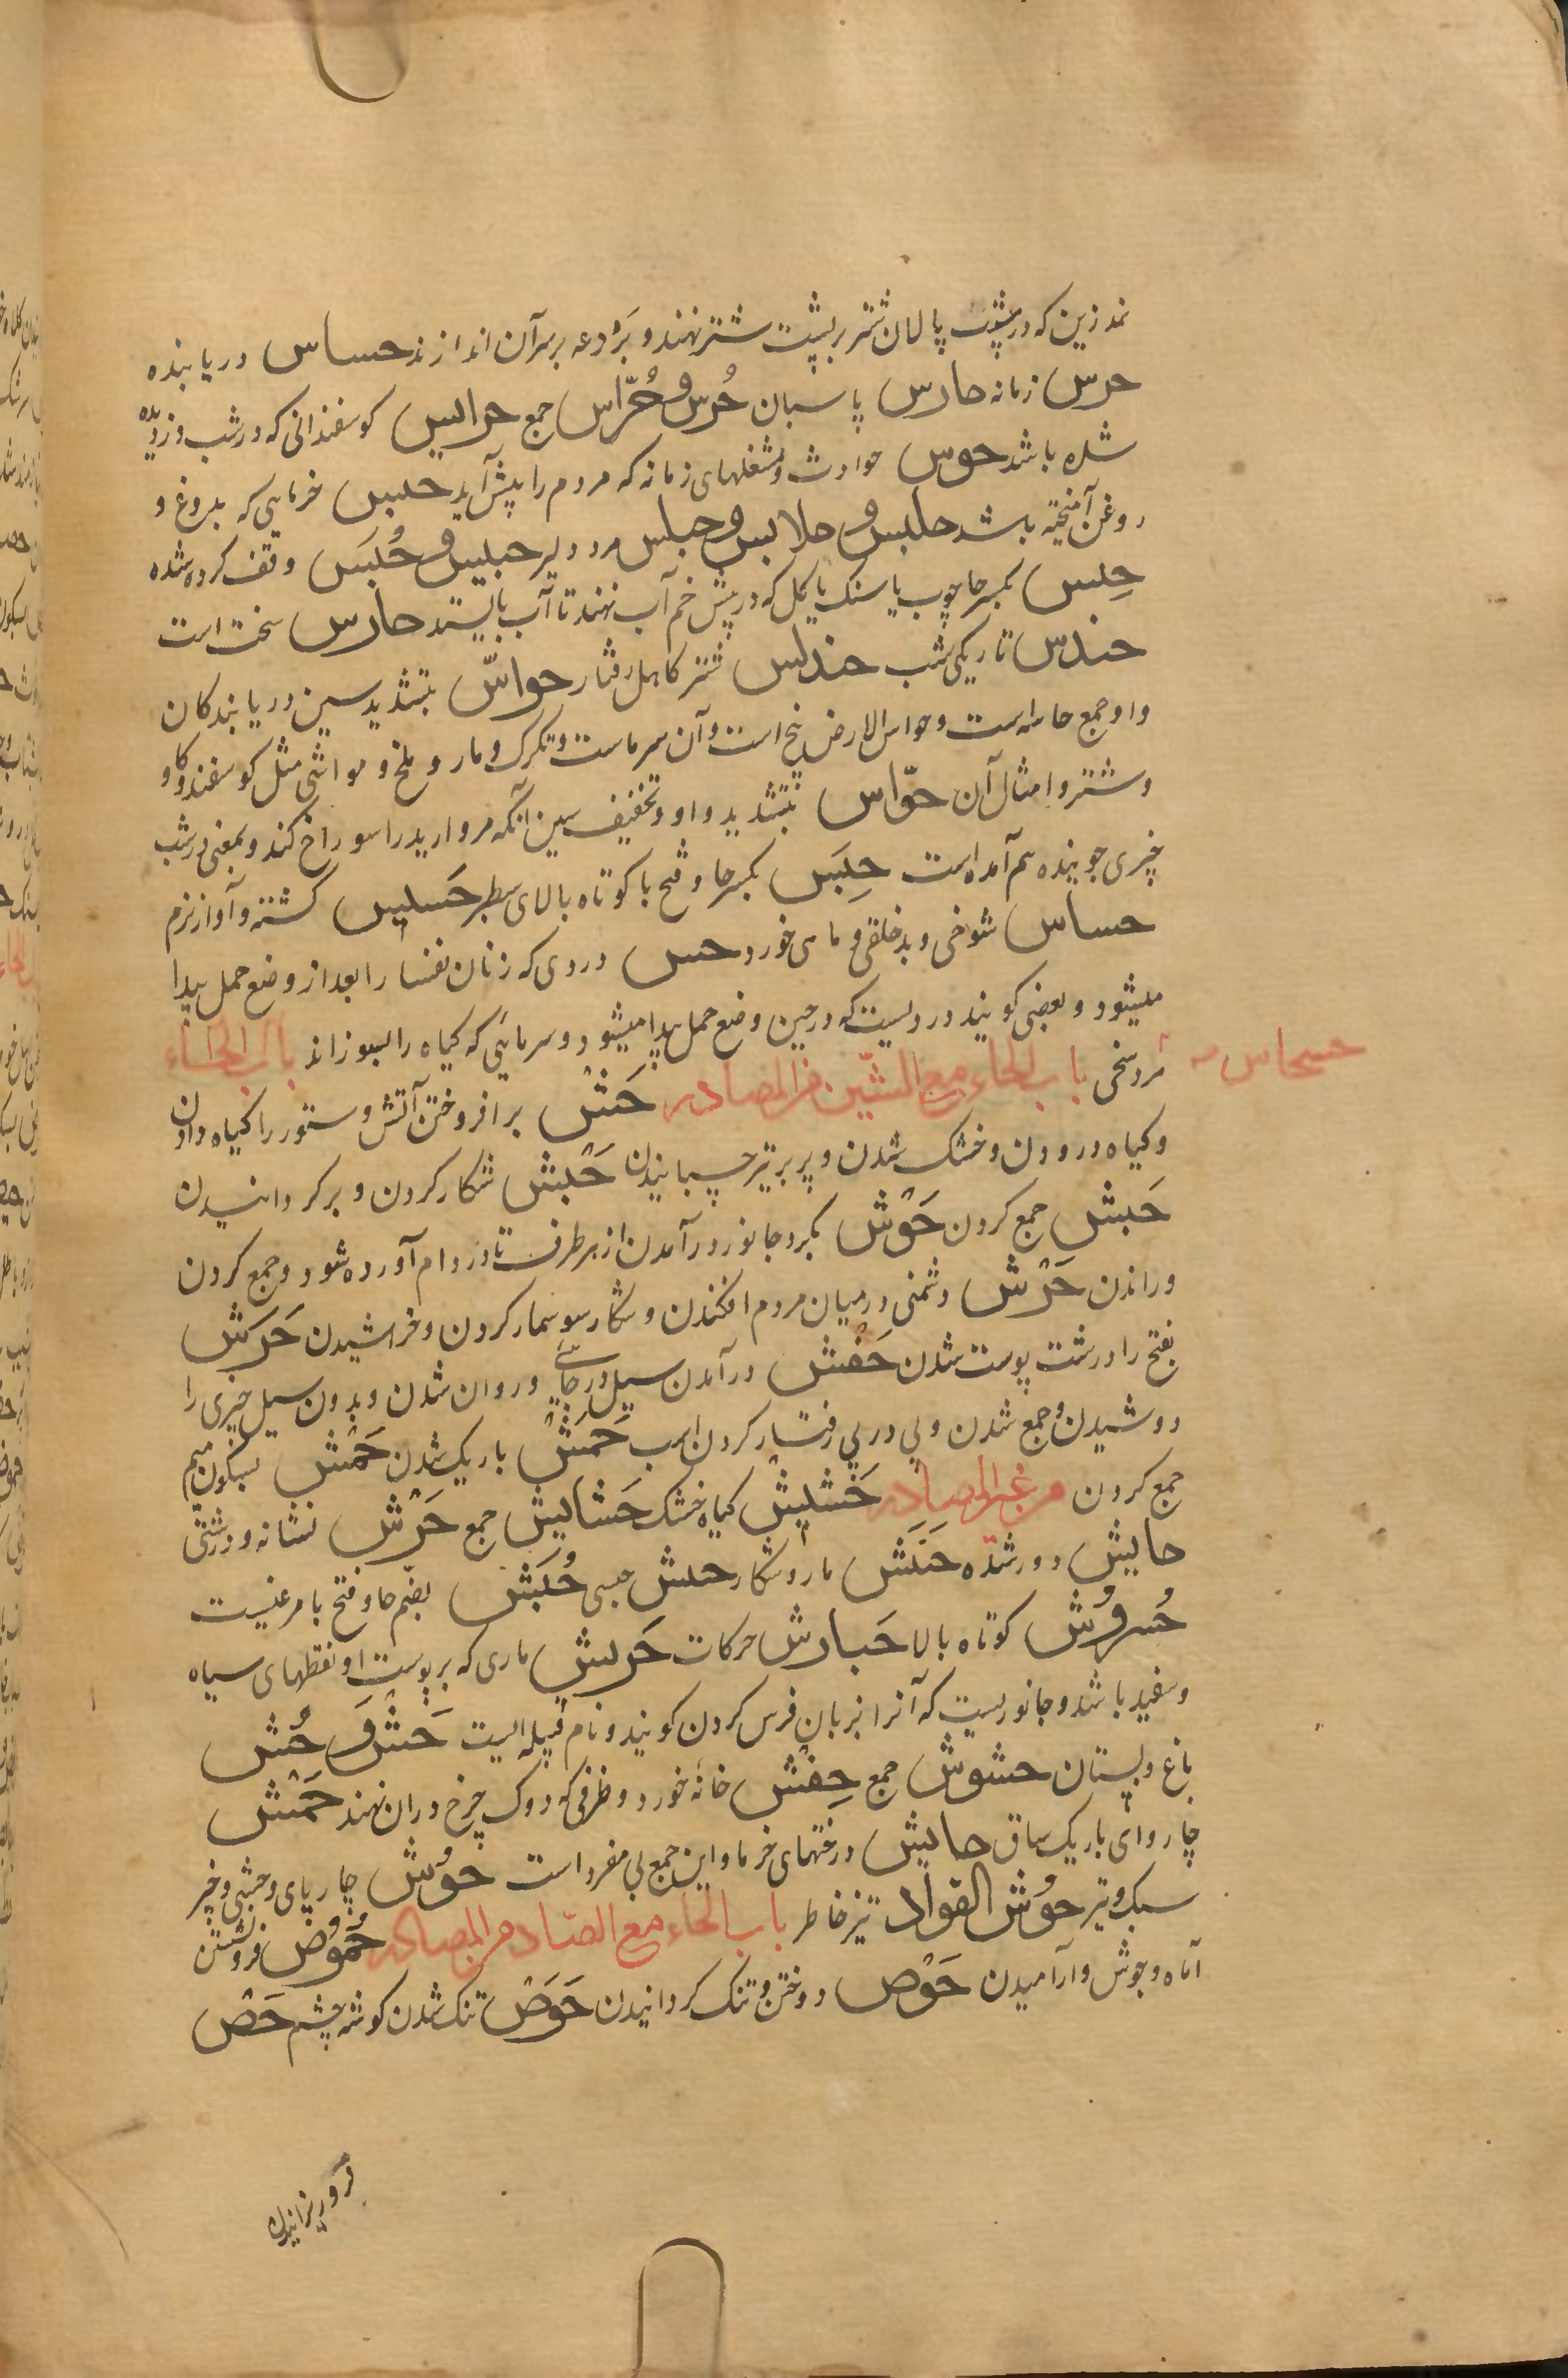 نمد زین که در پشت پالان شتر بر پشت شتر نهند و بَرْدعه بر سر آن اندازند حساس دریابنده
حرس زمانه حارس پاسبان حُرس و حُرّاس جمع حرایس کوسفندانی که در شب دزدیده
شده باشد حوس حوادث و شغلهای زمانه که مردم را پیش آید حیس خرمایی که بدروغ و
روغن آمیخته باشد حلبس و حلابس و حبلبس مرد دلیر حبیس و حُبَس وقف کرده شده
حِبس بکسر حا چوب یا سنک یا کل که در پیش خم آب نهند تا آب بایستد حارس سخت است
حندس تاریکی شب حندلس شتر کاهل رفتار حواسّ بتشدید سین دریابندکان
و او جمع حاسه است و حواس الارض پنج است و آن سرماست و تکرک و مار و ملخ و مواشی مثل کوسفند و کاو
و شتر و امثال آن حوّاس بتشدید واو و تخفیف سین آنکه مروارید را سوراخ کند و بمعنی در شب
چیزی جوینده هم آمده است حِبَس بکسر حا و فتح با کوتاه بالای سطبر حَسیس کشته و آواز نرم
حساس شوخی و بدخلقی و ماهی خورد حس دردی که زنان نفسا را بعد از وضع حمل پیدا
میشود و بعضی کویند دردیست که در حین وضع حمل پیدا میشود و سرمایی که کیاه را بسوزاند باب الحاء
حسحاس مرد سخی باب الحاء مع الشین من المصادر حَشّ برافروختن آتش و ستور را کیاه دادن
و کیاه درودن و خشک شدن و پر بر تیر چسبانیدن حَبْش شکار کردن و برکردانیدن
حَبش جمع کردن حَوْش بکرد جانور درآمدن از هر طرف تا در دام آورده شود و جمع کردن
و راندن حَرْش دشمنی در میان مردم افکندن و شکار سوسمار کردن و خراشیدن حَرَش
بفتح را درشت پوست شدن حَفْش درآمدن سیل در جایی و روان شدن و بدون سیل چیزی را
دوشیدن و جمع شدن و پی در پی رفتار کردن اسب حَمَش باریک شدن حَمْش بسکون میم
جمع کردن من غیر المصادر حَشیش کیاه خشک حَشایش جمع حَرْش نشانه و درشتی
حایش دور شده حَنَش مار و شکار حبش حبسی حُبَش بضم حا و فتح با مرغیست
حُرقوش کوتاه بالا حَبارش حرکات حَریش ماری که بر پوست او نقطهای سیاه
و سفید باشد و جانوریست که آنرا بزبان فرس کردن کویند و نام قبیله ایست حَش و حُش
باغ و بستان حشوش جمع حِفْش خانه خورد و ظرفی که دوک چرخ دران نهند حَمْش
چاروای باریک ساق حایش درختهای خرما و این جمع بی مفرد است حوُش چارپای وحشی و خیر
سبک و تیز حوُش الفواد تیز خاطر باب الحاء مع الصاد من المصادر حُموُص فرونشستن
آماه و جوش و آرامیدن حَوْص دوختن و تنک کردانیدن حَوَص تنک شدن کوشه چشم حَصّ